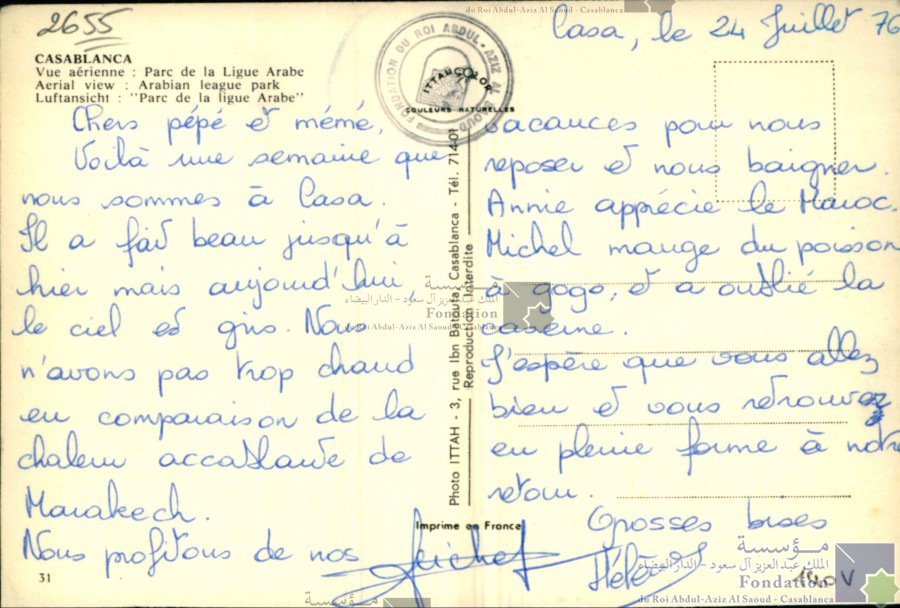 du Roi Abdul-Aziz Al Saoud - Casablanca
2655
CASABLANCA
Vue aérienne : Parc de la Ligue Arabe
Aerial view : Arabian league park
Luftansicht : "Parc de la ligue Arabe"
FONDATION DU ROI ABDUL-AZIZ AL SAOUD
ITTAHCOLOR
COULEURS NATURELLES
Casa, le 24 Juillet 76
Chers pépé et mémé,
Voilà une semaine que
nous sommes à Casa.
Il a fait beau jusqu'à
hier mais aujourd'hui,
le ciel est gris. Nous
n'avons pas trop chaud
en comparaison de la
chaleur accablante de
Marakech.
Nous profitons de nos
vacances pour nous
reposer et nous baigner.
Annie apprécie le Maroc.
Michel mange du poisson
à gogo, et a oublié la
caserne.
J'espère que vous allez
bien et vous retrouver
en pleine forme à notre
retour.
Grosses bises
Michel
Hélène
Photo ITTAH - 3, rue Ibn Batouta, Casablanca - Tél. 714-01
Reproduction Interdite
Imprime en France
31
مؤسسة
الملك عبد العزيز آل سعود - الدار البيضاء
Fondation
du Roi Abdul-Aziz Al Saoud - Casablanca
مؤسسة
الملك عبد العزيز آل سعود - الدار البيضاء
Fondation
du Roi Abdul-Aziz Al Saoud - Casablanca
مؤسسة